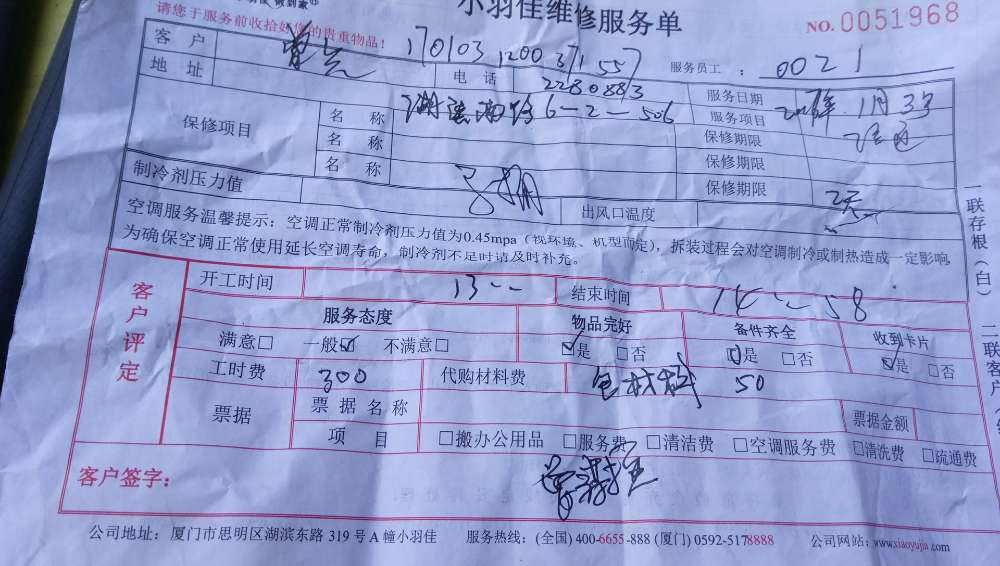 请您于服务前收拾好您的贵重物品！
小羽佳维修服务单
NO.0051968
客户 170103 1200 371 557 服务员工： 0021
地址 电话 2280883 服务日期 1月3日
保修项目 名称 6-2-506 服务项目
名称 保修期限
名称 保修期限
制冷剂压力值 出风口温度 保修期限 2天
空调服务温馨提示：空调正常制冷剂压力值为0.45mpa（视环境、机型而定），拆装过程会对空调制冷或制热造成一定影响，
为确保空调正常使用延长空调寿命，制冷剂不足时请及时补充。
一联存根（白）
二联客户
客户评定
开工时间 13 结束时间 14 58
服务态度 物品完好 备件齐全 收到卡片
满意□ 一般☑ 不满意□ ☑是 □否 ☑是 □否 ☑是 □否
工时费 300 代购材料费 包材料 50
票据 票据名称 票据金额
项目 □搬办公用品 □服务费 □清洁费 □空调服务费 □清洗费 □疏通费
客户签字：
公司地址：厦门市思明区湖滨东路319号A幢小羽佳 服务热线：(全国) 400-6655-888 (厦门) 0592-5178888 公司网站：www.xiaoyujia.com